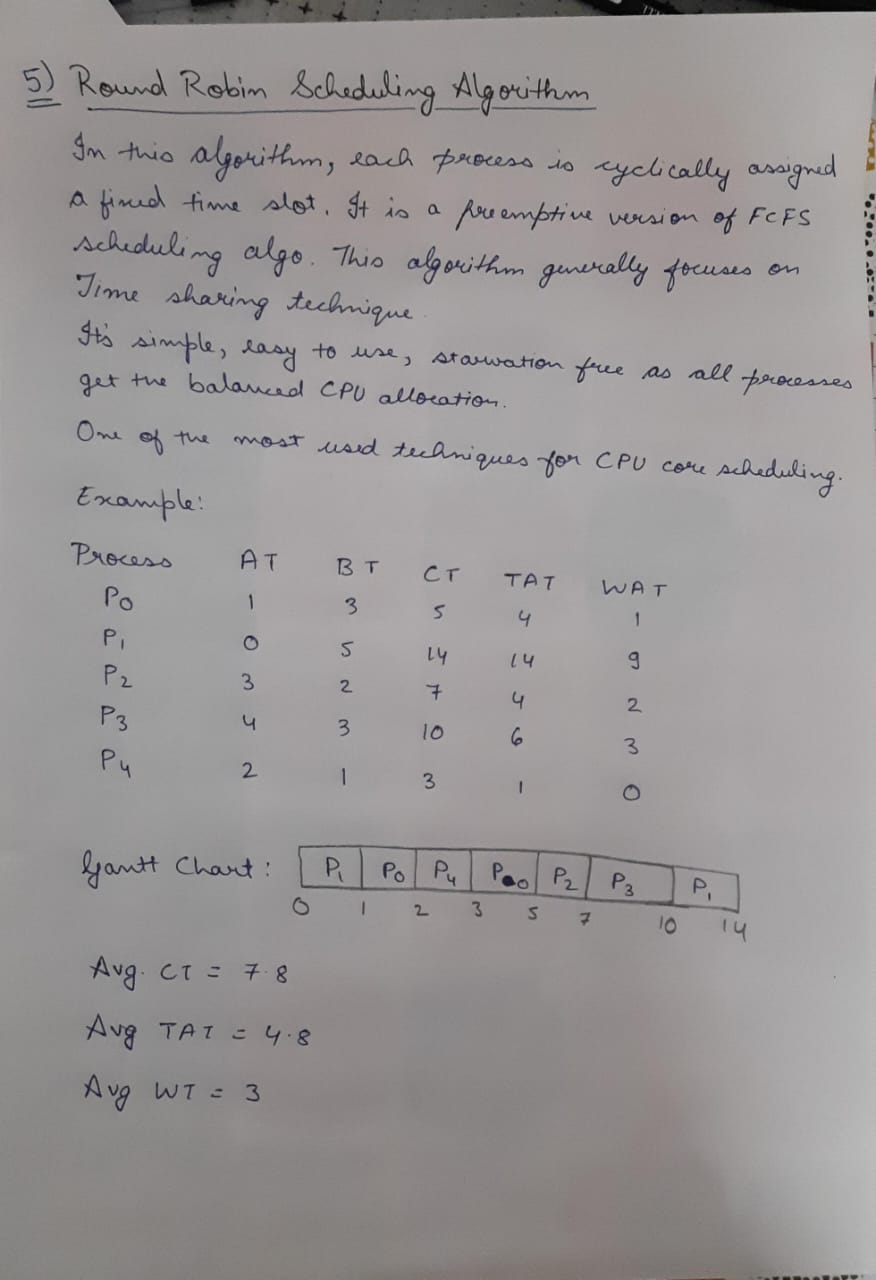 5) Round Robin Scheduling Algorithm
In this algorithm, each process is cyclically assigned
a fixed time slot. It is a preemptive version of FCFS
scheduling algo. This algorithm generally focuses on
Time sharing technique.
It's simple, easy to use, starvation free as all processes
get the balanced CPU allocation.
One of the most used techniques for CPU core scheduling.
Example:
Process AT BT CT TAT WAT
P0 1 3 5 4 1
P1 0 5 14 14 9
P2 3 2 7 4 2
P3 4 3 10 6 3
P4 2 1 3 1 0
Gantt Chart: P1 P0 P4 P0 P2 P3 P1
0 1 2 3 5 7 10 14
Avg. CT = 7.8
Avg TAT = 4.8
Avg WT = 3